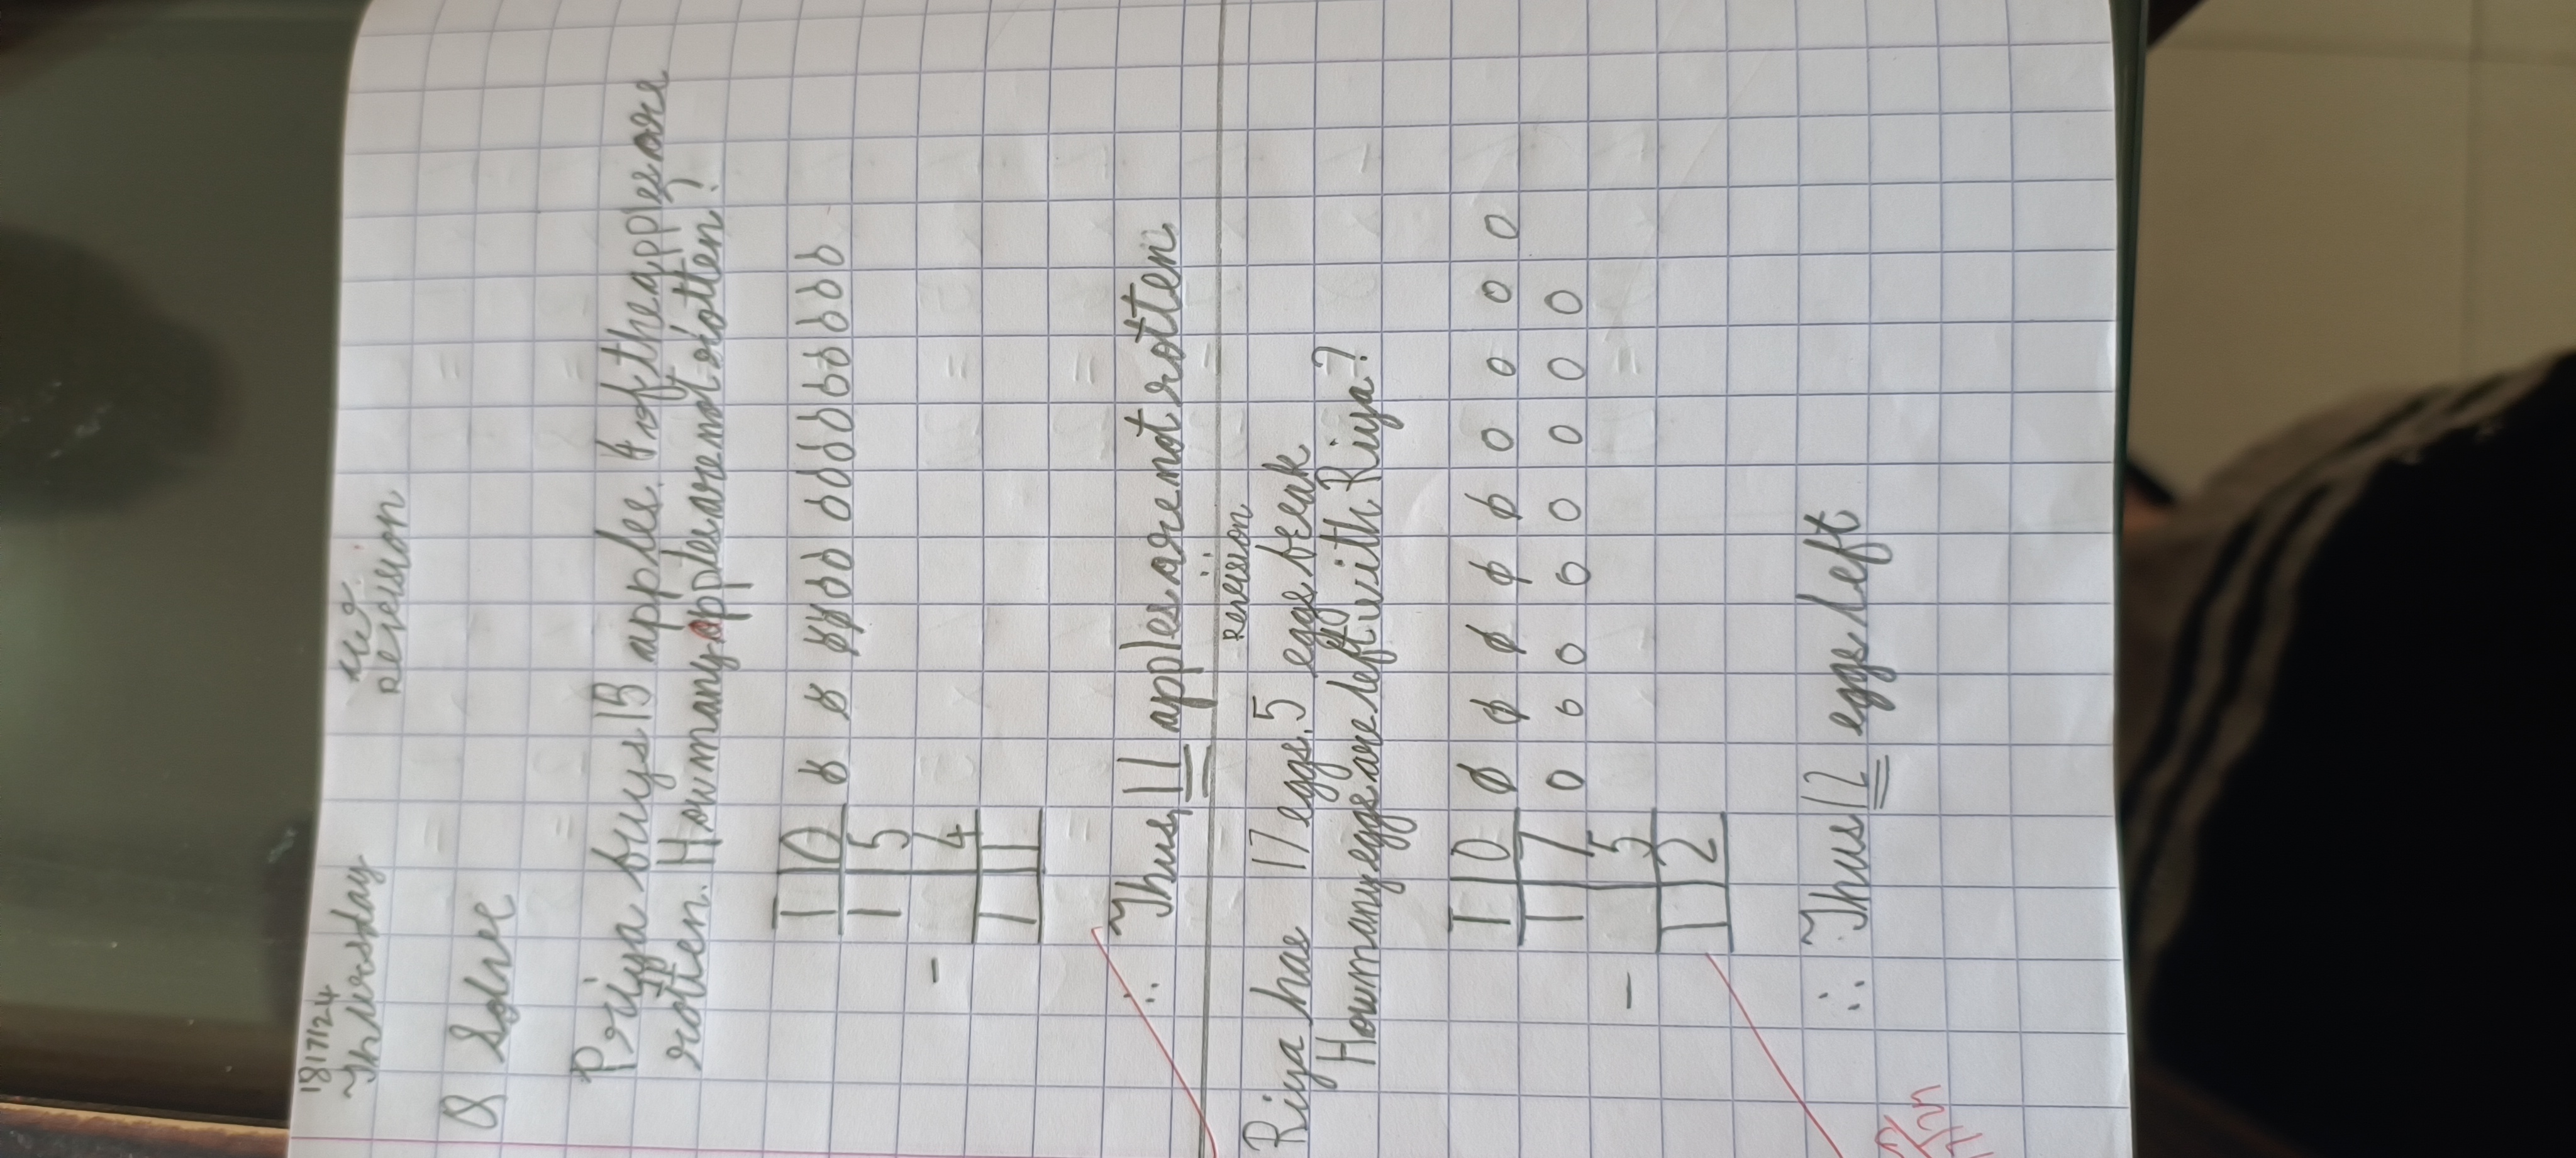 18/7/24
Thursday
Revision
Q Solve
Priya buys 15 apples. 4 of the apples are
rotten. How many apples are not rotten?
T O
1 5
- 4
1 1
∴ Thus, 11 apples are not rotten
Revision
Riya has 17 eggs. 5 eggs break
How many eggs are left with Riya?
T O
1 7
- 5
1 2
∴ Thus 12 eggs left